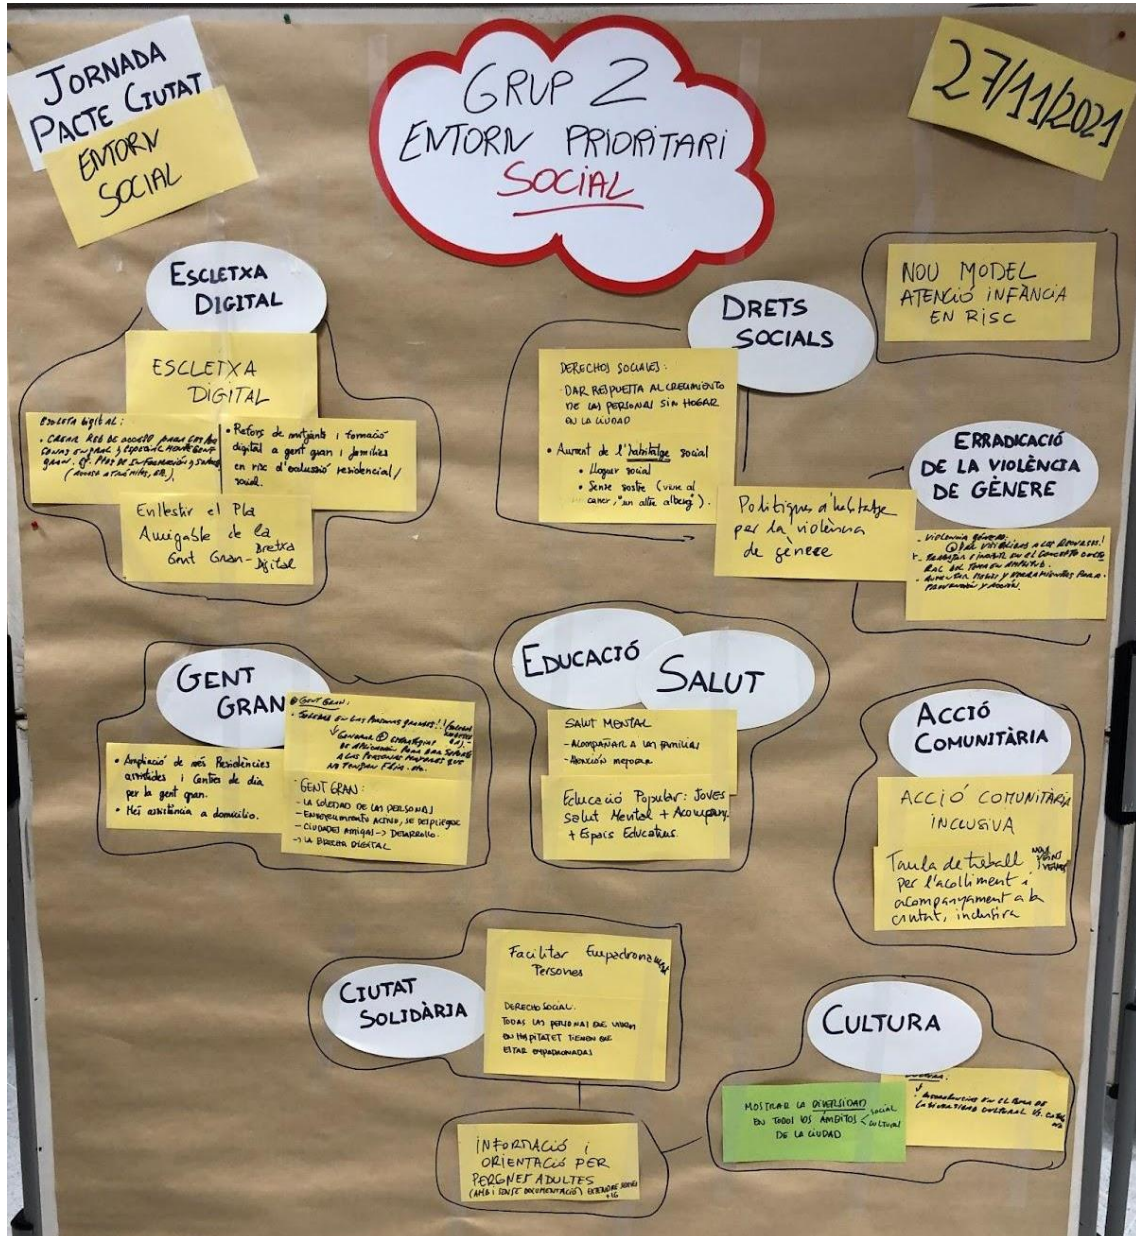 JORNADA
PACTE CIUTAT
ENTORN
SOCIAL
GRUP 2
ENTORN PRIORITARI
SOCIAL
27/11/2021
ESCLETXA
DIGITAL
ESCLETXA
DIGITAL
• CREAR RED DE ACCESO PARA LAS PER
SONAS EN GRAL Y ESPECIALMENTE GENT
GRAN.
• Reforç de mitjants i formació
digital a gent gran i famílies
en risc d'exclussió residencial/
social.
Enllestir el Pla
Amigable de la
Gent Gran - Bretxa
Digital
DRETS
SOCIALS
DERECHOS SOCIALES:
- DAR RESPUESTA AL CRECIMIENTO
DE LAS PERSONAS SIN HOGAR
EN LA CIUDAD
• Aument de l'habitatge social
• Lloguer social
• Sense sostre (viure al
carrer, "un altre alberg").
Polítiques d'habitatge
per la violència
de gènere
NOU MODEL
ATENCIÓ INFÀNCIA
EN RISC
ERRADICACIÓ
DE LA VIOLÈNCIA
DE GÈNERE
- VIOLENCIA GÉNERO:
• AUMENTAR MEDIOS Y HERRAMIENTAS PARA
PREVENCIÓN Y ACCIÓN.
GENT
GRAN
• Ampliació de més Residències
assistides i Centres de dia
per la gent gran.
• Més assistència a domicilio.
• GENT GRAN:
DE AFICIONES PARA DAR SOPORTE
A LAS PERSONAS MAYORES QUE
NO TENGAN FLIA. ETC.
- GENT GRAN:
- LA SOLEDAD DE LAS PERSONAS
- ENVEJECIMIENTO ACTIVO, SE DESPLIEGUE
- CIUDADES AMIGAS -> DESARROLLO.
-> LA BRECHA DIGITAL
EDUCACIÓ
SALUT
SALUT MENTAL
- ACOMPAÑAR A LAS FAMILIAS
- ATENCIÓN MEJORAR
Educació Popular: Joves
Salut Mental + Acompany.
+ Espais Educatius.
ACCIÓ
COMUNITÀRIA
ACCIÓ COMUNITÀRIA
INCLUSIVA
Taula de treball NOUS VEÏNS I VEÏNES
per l'acolliment i
acompanyament a la
ciutat, inclusiva
CIUTAT
SOLIDÀRIA
Facilitar Empadronament
Persones
DERECHO SOCIAL.
TODAS LAS PERSONAS QUE VIVEN
EN HOSPITALET TIENEN QUE
ESTAR EMPADRONADAS
INFORMACIÓ I
ORIENTACIÓ PER
PERSONES ADULTES
(AMB I SENSE DOCUMENTACIÓ)
+16
CULTURA
MOSTRAR LA DIVERSIDAD
EN TODOS LOS ÁMBITOS < SOCIAL CULTURAL
DE LA CIUDAD
CULTURA:
LA DIVERSIDAD CULTURAL